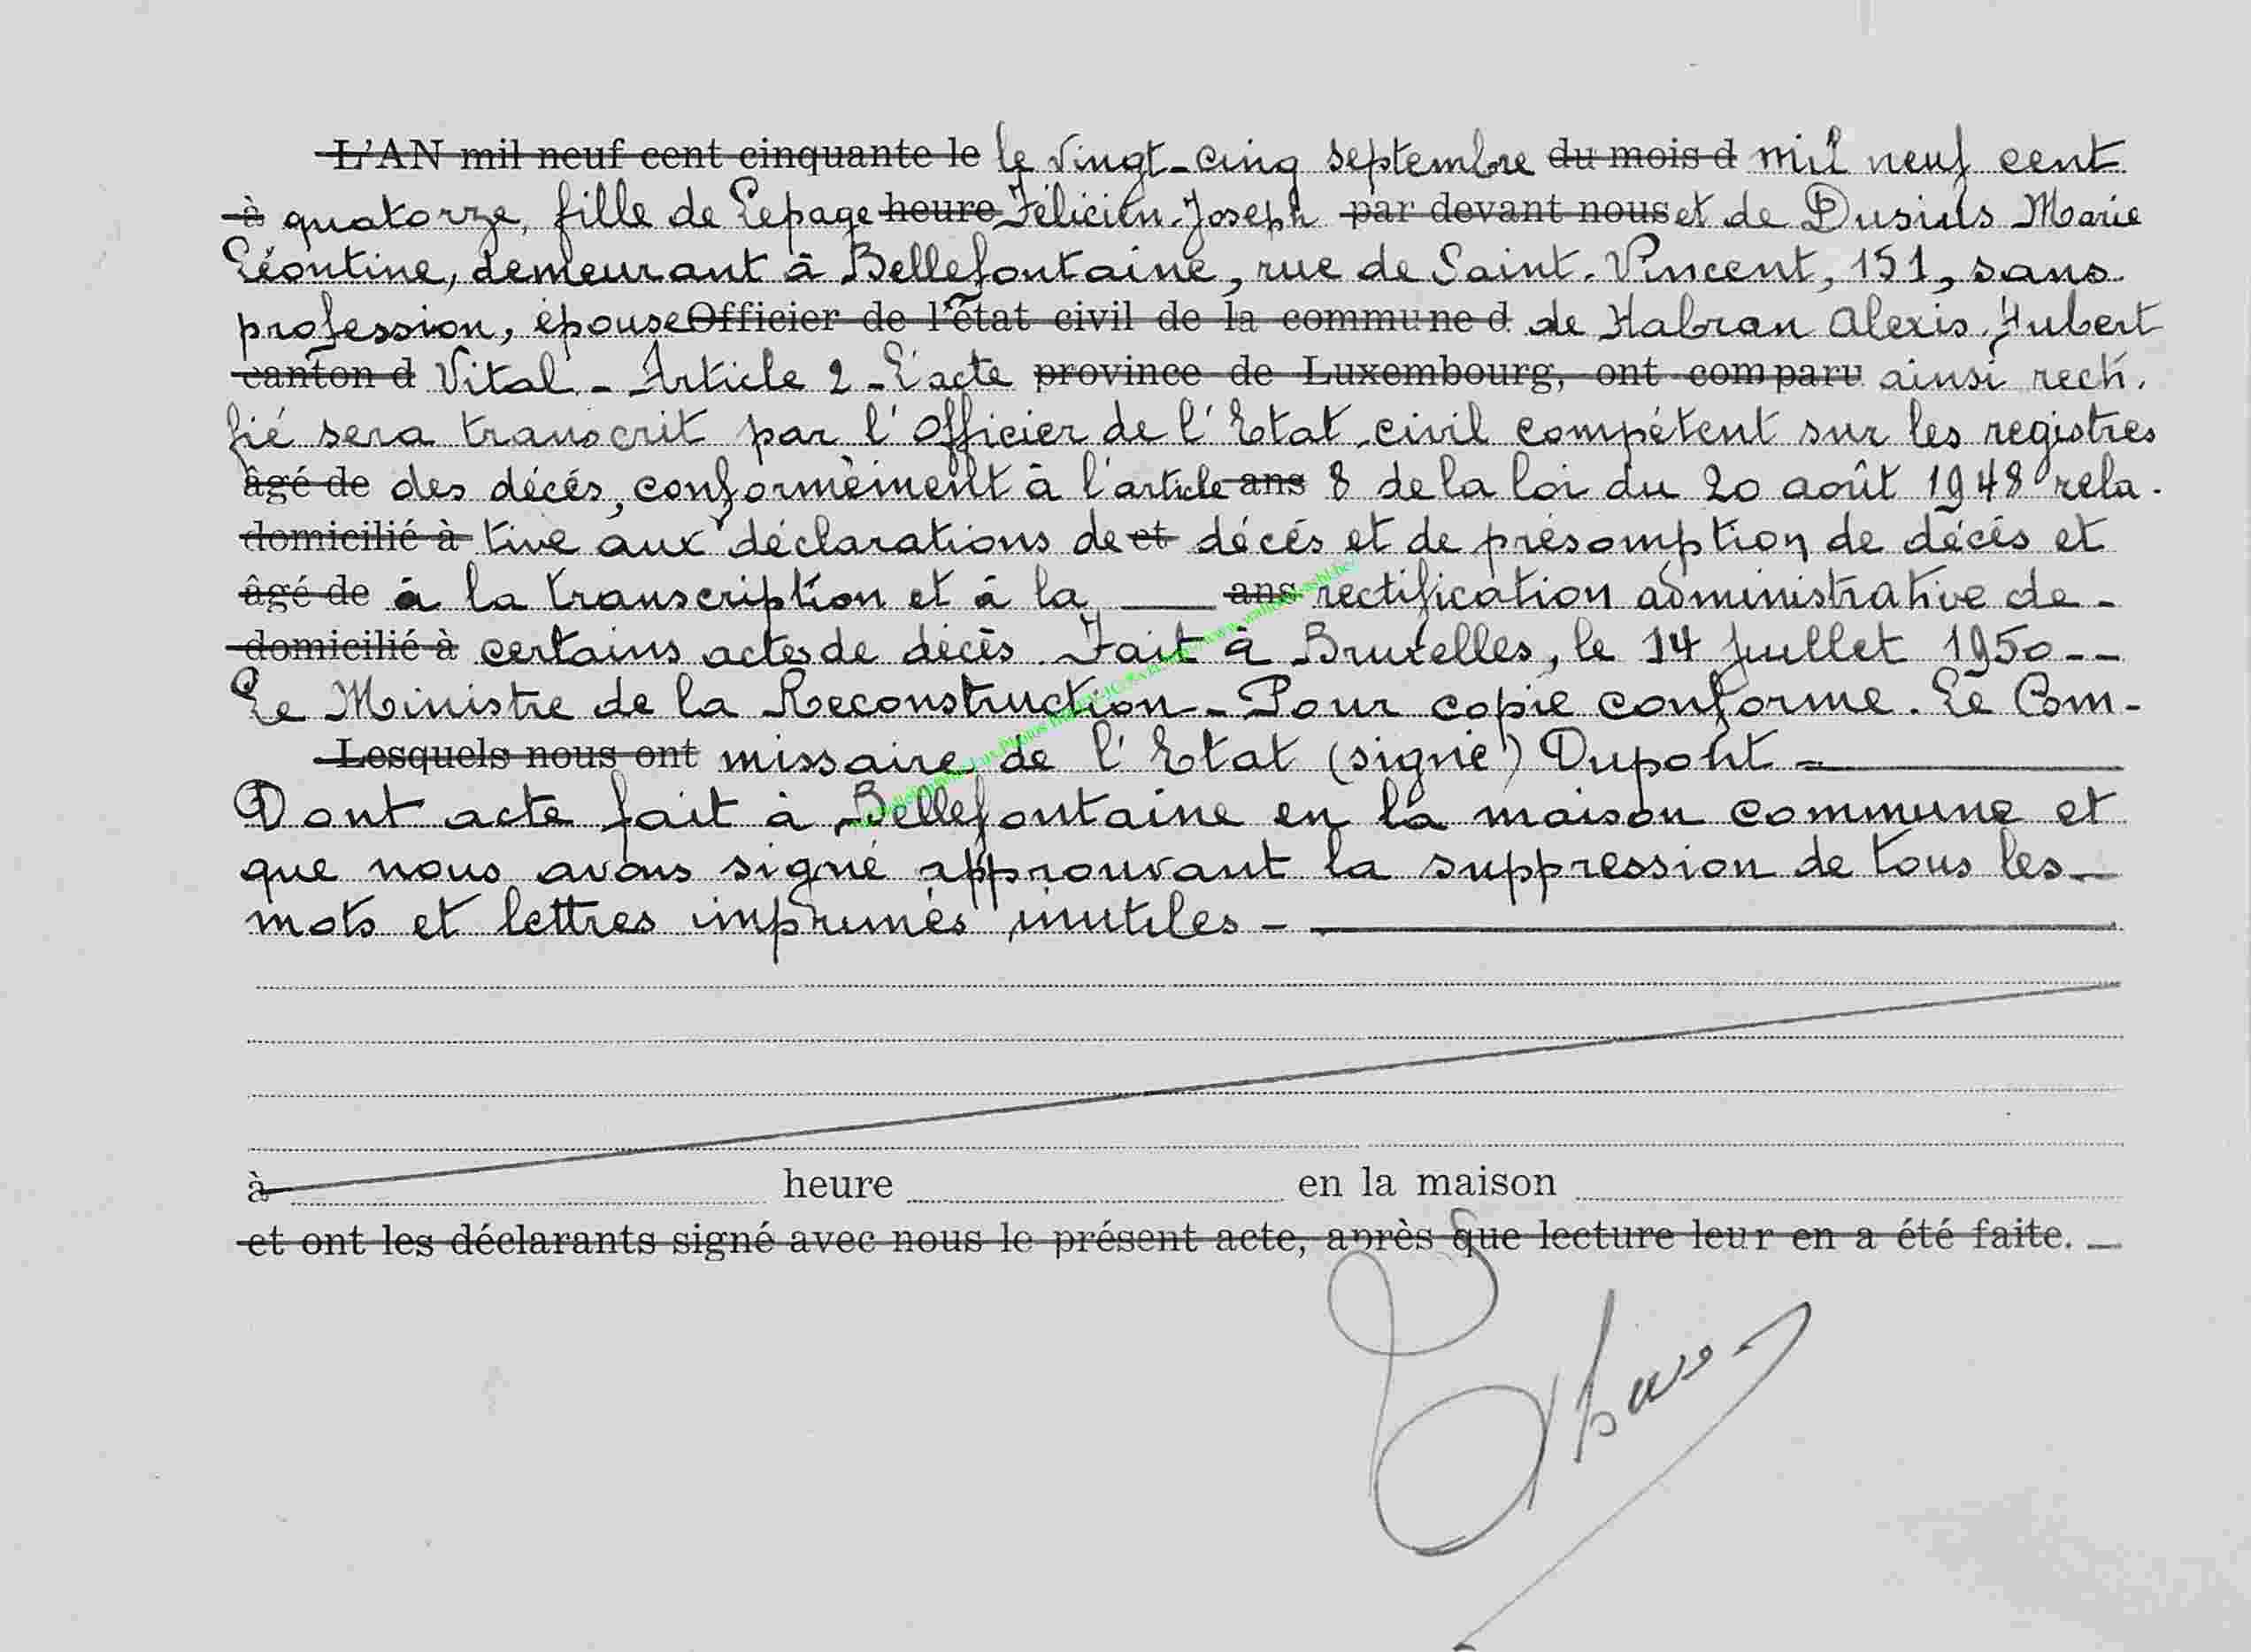 L'AN mil neuf cent cinquante le le vingt-cinq septembre du mois d mil neuf cent
à quatorze, fille de Lepage heure Félicien-Joseph par devant nous et de Dusius Marie
Léontine, demeurant à Bellefontaine, rue de Saint-Vincent, 151, sans
profession, épouse Officier de l'état civil de la commune d de Habran Alexis Hubert
canton d Vital - Article 2 - L'acte province de Luxembourg, ont comparu ainsi recti.
fié sera transcrit par l'Officier de l'Etat-civil compétent sur les registres
âgé de des décès, conformèment à l'article ans 8 de la loi du 20 août 1948 rela-
domicilié à tive aux déclarations de et décès et de présomption de décès et
âgé de à la transcription et à la ans rectification administrative de -
domicilié à certains actes de décès. Fait à Bruxelles, le 14 juillet 1950 --
Le Ministre de la Reconstruction - Pour copie conforme. Le Com-
Lesquels nous ont missaire de l'Etat (signé) Dupont -
Dont acte fait à Bellefontaine en la maison commune et
que nous avons signé approuvant la suppression de tous les -
mots et lettres imprimés inutiles -
à heure en la maison
et ont les déclarants signé avec nous le présent acte, après que lecture leur en a été faite. -